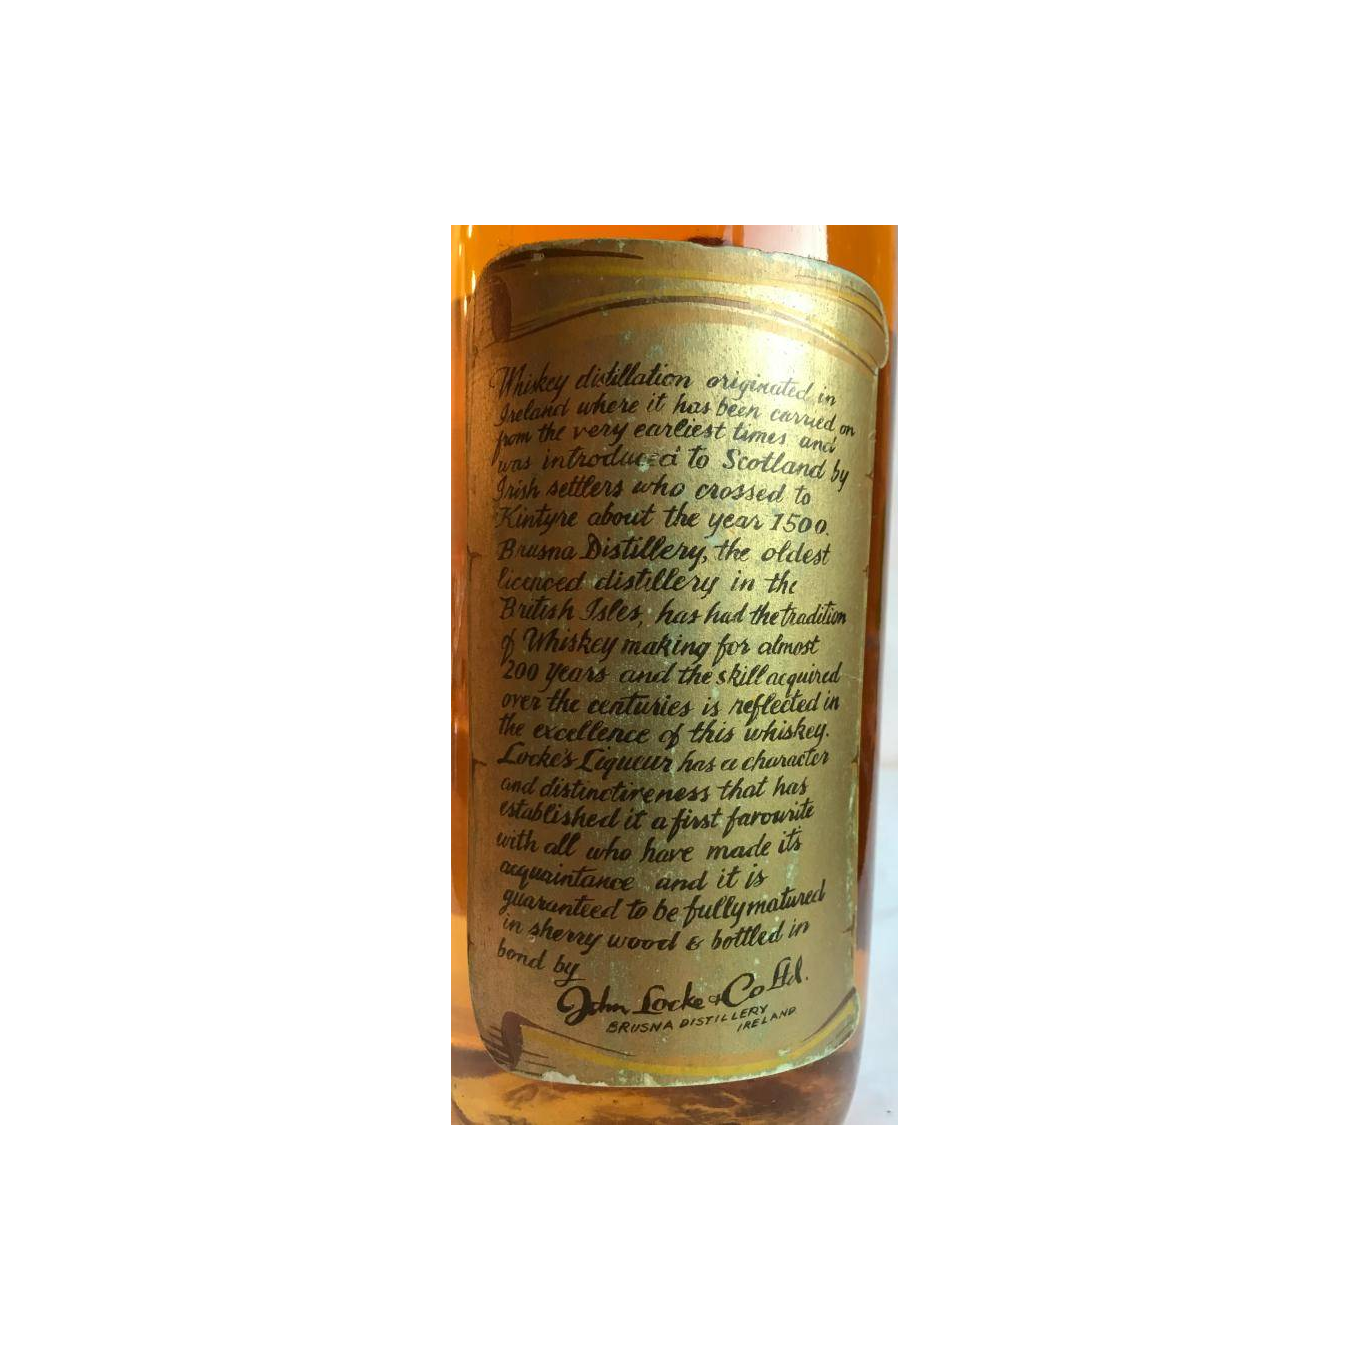 Whiskey distillation originated in
Ireland where it has been carried on
from the very earliest times and
was introduced to Scotland by
Irish settlers who crossed to
Kintyre about the year 1500.
Brusna Distillery, the oldest
licenced distillery in the
British Isles, has had the tradition
of Whiskey making for almost
200 years and the skill acquired
over the centuries is reflected in
the excellence of this whiskey.
Locke's Liqueur has a character
and distinctiveness that has
established it a first favourite
with all who have made its
acquaintance and it is
guaranteed to be fully matured
in sherry wood & bottled in
bond by
John Locke & Co Ltd.
BRUSNA DISTILLERY
IRELAND